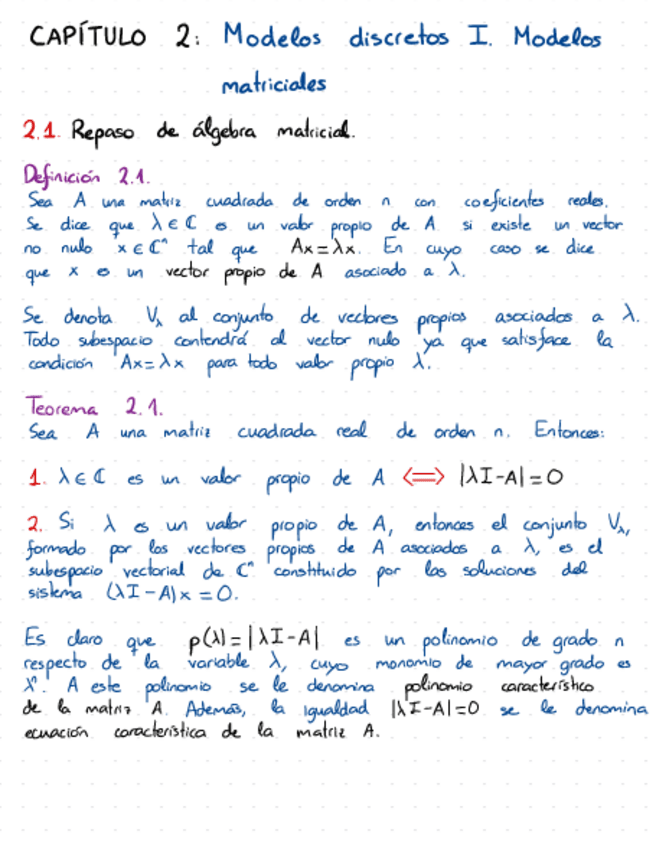 CAPÍTULO 2: Modelos discretos I. Modelos
matriciales
2.1. Repaso de álgebra matricial.
Definición 2.1.
Sea A una matriz cuadrada de orden n con coeficientes reales.
Se dice que λ ∈ ℂ es un valor propio de A si existe un vector
no nulo x ∈ ℂⁿ tal que Ax=λx. En cuyo caso se dice
que x es un vector propio de A asociado a λ.
Se denota V_λ al conjunto de vectores propios asociados a λ.
Todo subespacio contendrá al vector nulo ya que satisface la
condición Ax=λx para todo valor propio λ.
Teorema 2.1.
Sea A una matriz cuadrada real de orden n. Entonces:
1. λ ∈ ℂ es un valor propio de A ⟺ |λI-A|=0
2. Si λ es un valor propio de A, entonces el conjunto V_λ,
formado por los vectores propios de A asociados a λ, es el
subespacio vectorial de ℂⁿ constituido por las soluciones del
sistema (λI-A)x=0.
Es claro que p(λ)=|λI-A| es un polinomio de grado n
respecto de la variable λ, cuyo monomio de mayor grado es
λⁿ. A este polinomio se le denomina polinomio característico
de la matriz A. Además, la igualdad |λI-A|=0 se le denomina
ecuación característica de la matriz A.